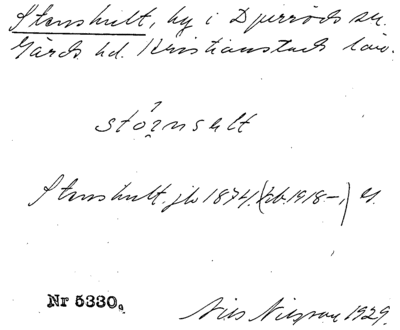 Stenshult, by i Djurröds sn.
Gärds hd. Kristianstads län.
stó̜ᴢnselt
Stenshult. jb 1874. (kb. 1918–,) G.
Nr 5330.
Nils Nilsson 1929.